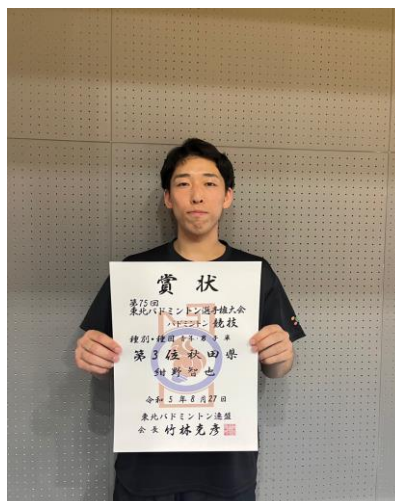 賞状
第75回
東北バドミントン選手権大会
バドミントン 競技
種別・種目
第3位 秋田県
紺野智也
令和5年8月27日
東北バドミントン連盟
会長 竹林克彦